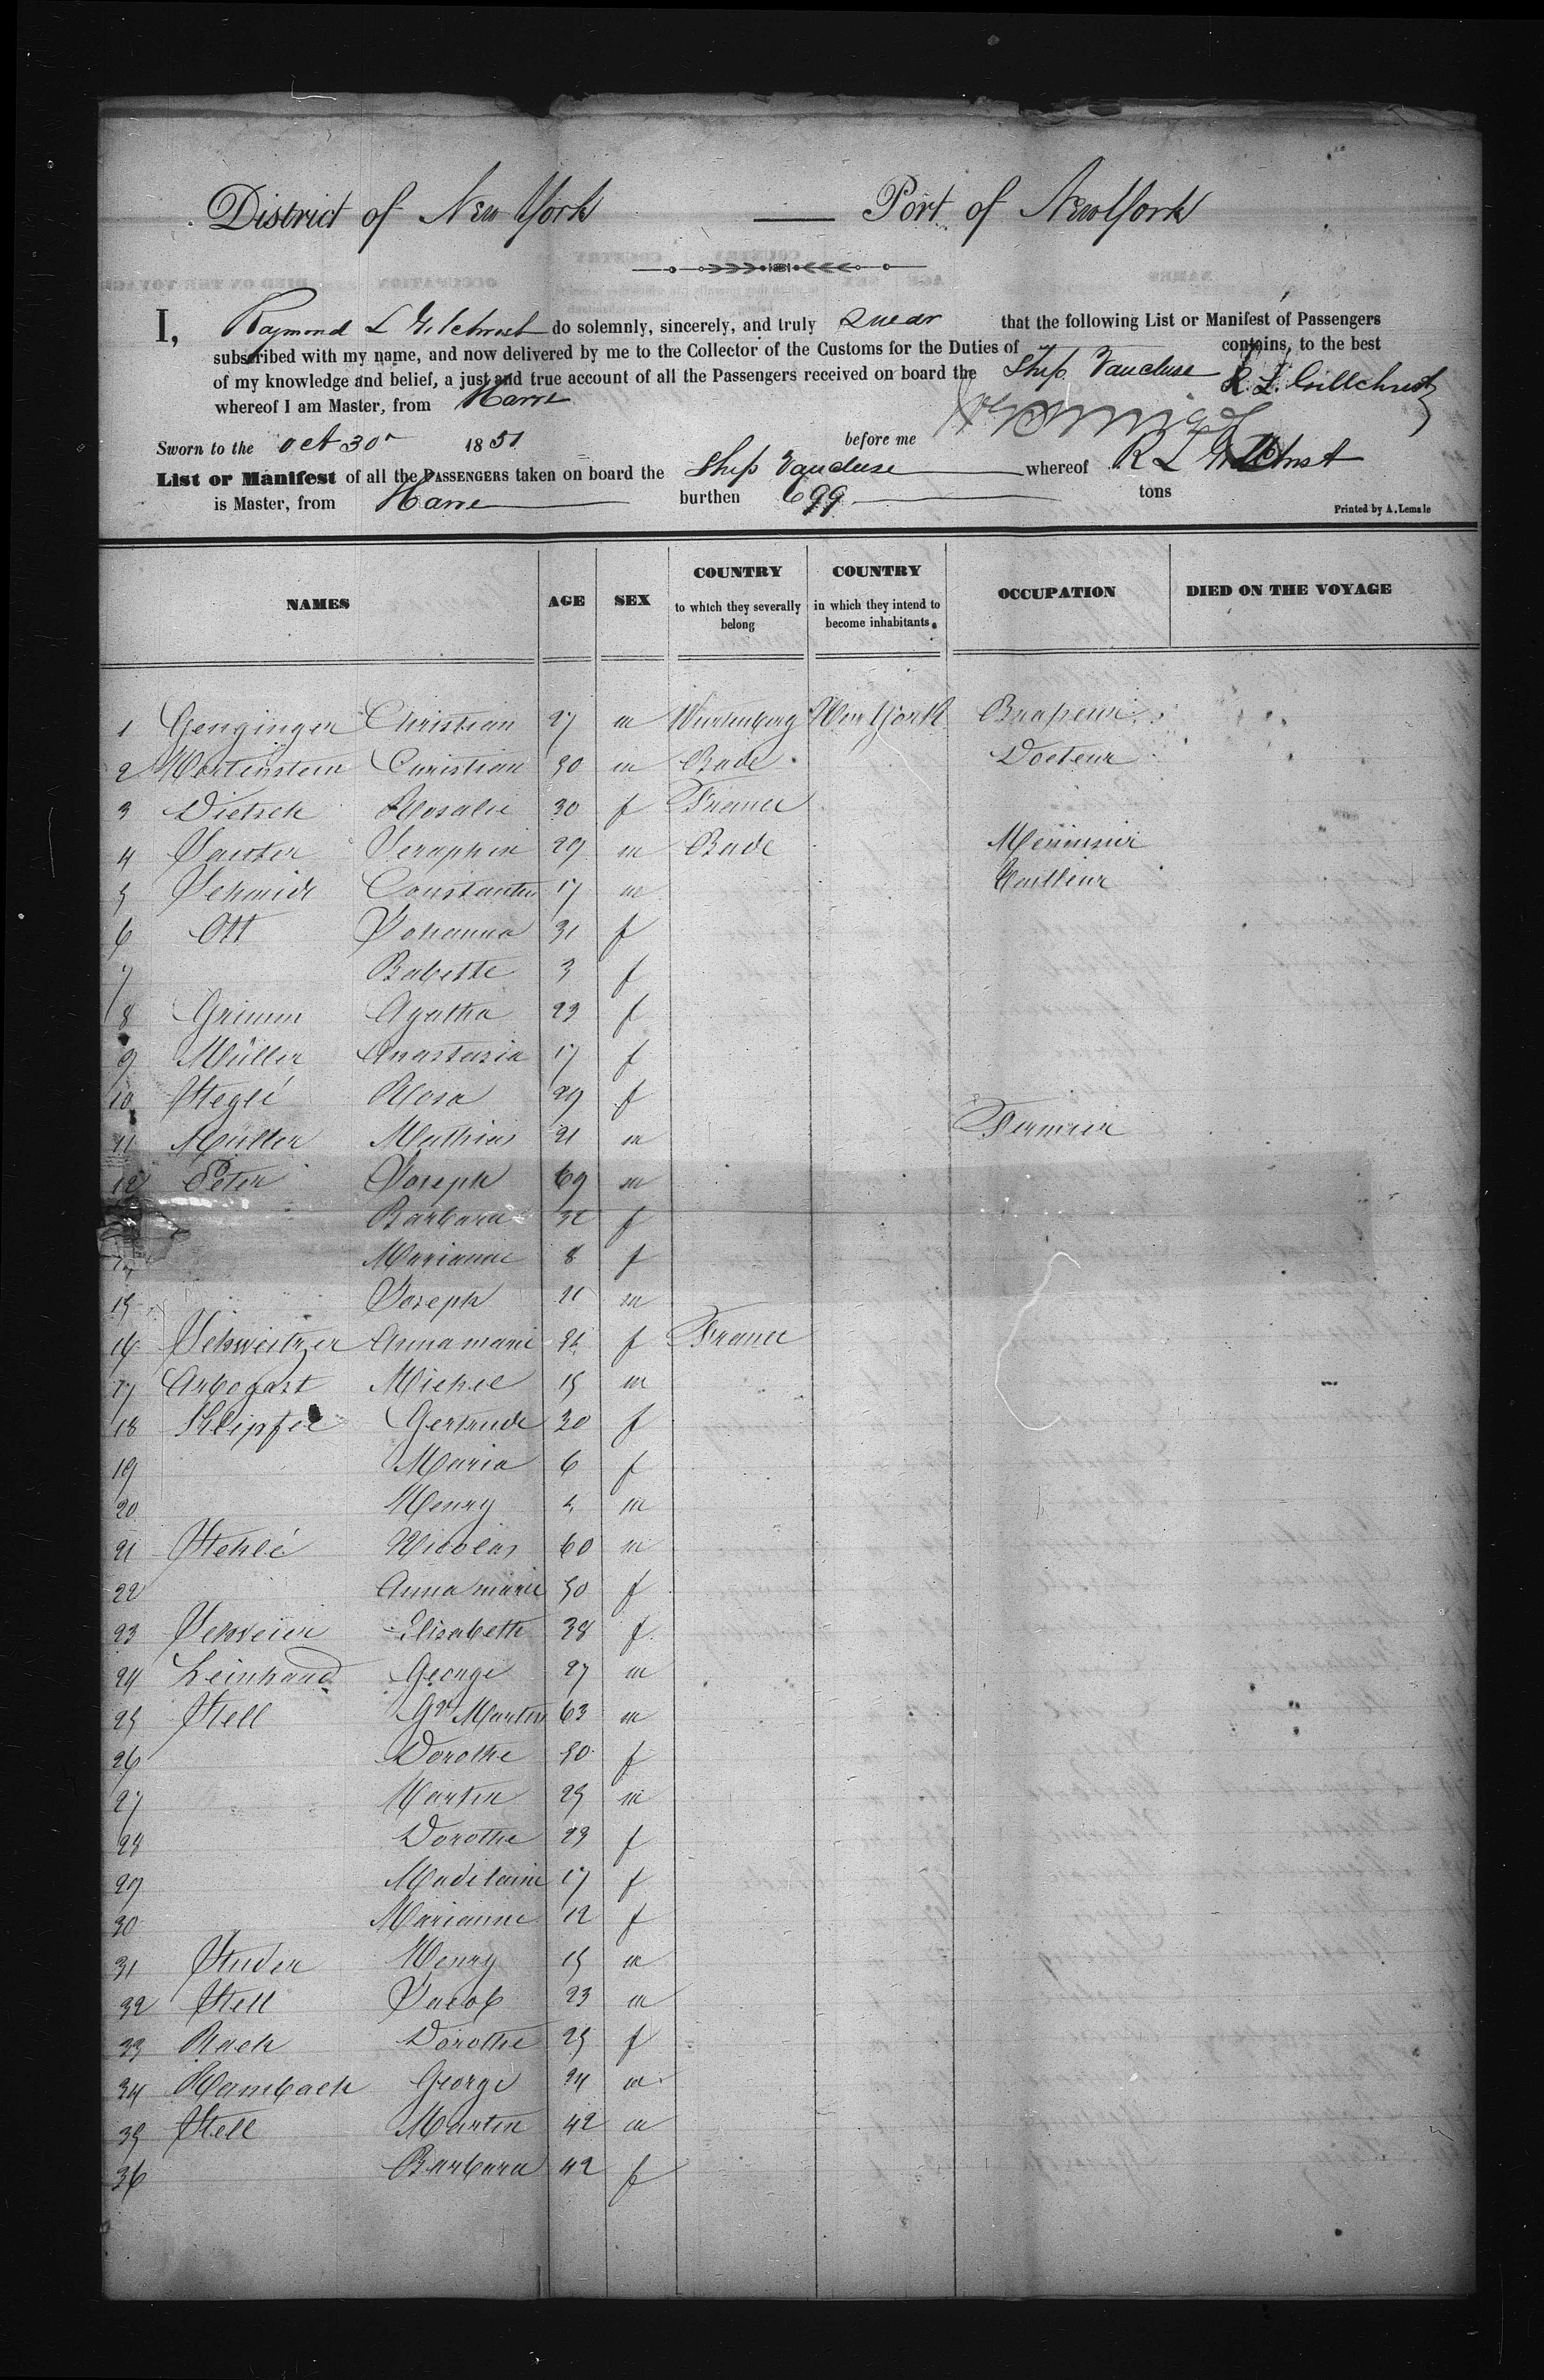 District of New York Port of New York
I, Raymond L Gilchrist do solemnly, sincerely, and truly swear that the following List or Manifest of Passengers
subscribed with my name, and now delivered by me to the Collector of the Customs for the Duties of contains, to the best
of my knowledge and belief, a just and true account of all the Passengers received on board the Ship Vaucluse R. L. Gillchrist
whereof I am Master, from Havre
Sworn to the Oct 30 1851 before me
List or Manifest of all the PASSENGERS taken on board the Ship Vaucluse whereof R L Gilchrist
is Master, from Havre burthen 699 tons
Printed by A. Lemale
NAMES AGE SEX COUNTRY to which they severally belong COUNTRY in which they intend to become inhabitants. OCCUPATION DIED ON THE VOYAGE
1 Genginger Christian 27 m Wurtemberg New York
2 Hortenstein Christian 30 m Bade Docteur
3 Dietsch Rosalie 30 f France
4 Seraphin 29 m Bade Menuisier
5 Schmidt Constantin 17 m Tailleur
6 Ott Johanna 31 f
7 Babette 3 f
8 Grimm Agatha 23 f
9 Müller Anastasia 17 f
10 Steglé Rosa 29 f
11 Müller Mathias 21 m Fermier
12 Peter Joseph 69 m
Barbara f
14 Marianne 8 f
15 Joseph 21 m
16 Schweitzer Anna marie f France
17 Arbogast Michel 15 m
18 Klipfel Gertrude 30 f
19 Maria 6 f
20 Henry 4 m
21 Stehlé Nicolas 60 m
22 Anna marie 50 f
23 Schweier Elisabeth 38 f
24 Leinhard George 27 m
25 Stell Martin 63 m
26 Dorothe 50 f
27 Martin 25 m
28 Dorothe 23 f
29 Madelaine 17 f
30 Marianne 12 f
31 Studer Henry 15 m
32 Stell Jacob 23 m
33 Rach Dorothe 25 f
34 Hambach George 24 m
35 Stell Martin 42 m
36 Barbara 42 f